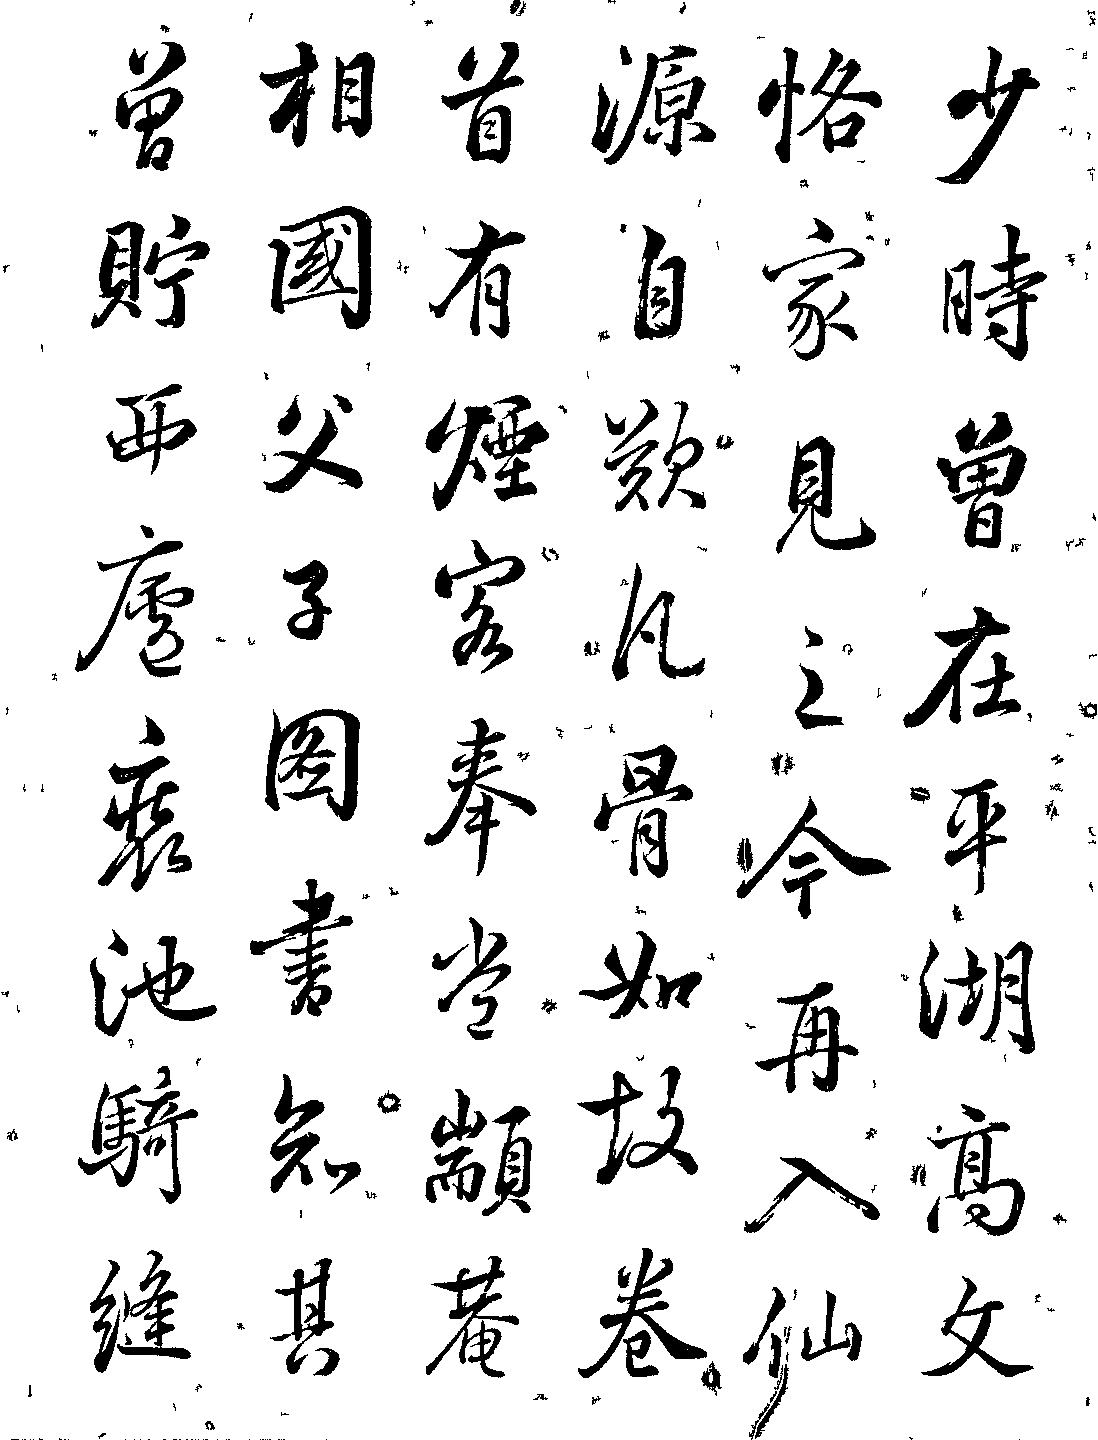 少時曾在平湖高文
恪家見之今再入仙
源自歎凡骨如故卷
首有煙客奉常顓菴
相國父子图書知其
曾貯西廬裱池騎縫